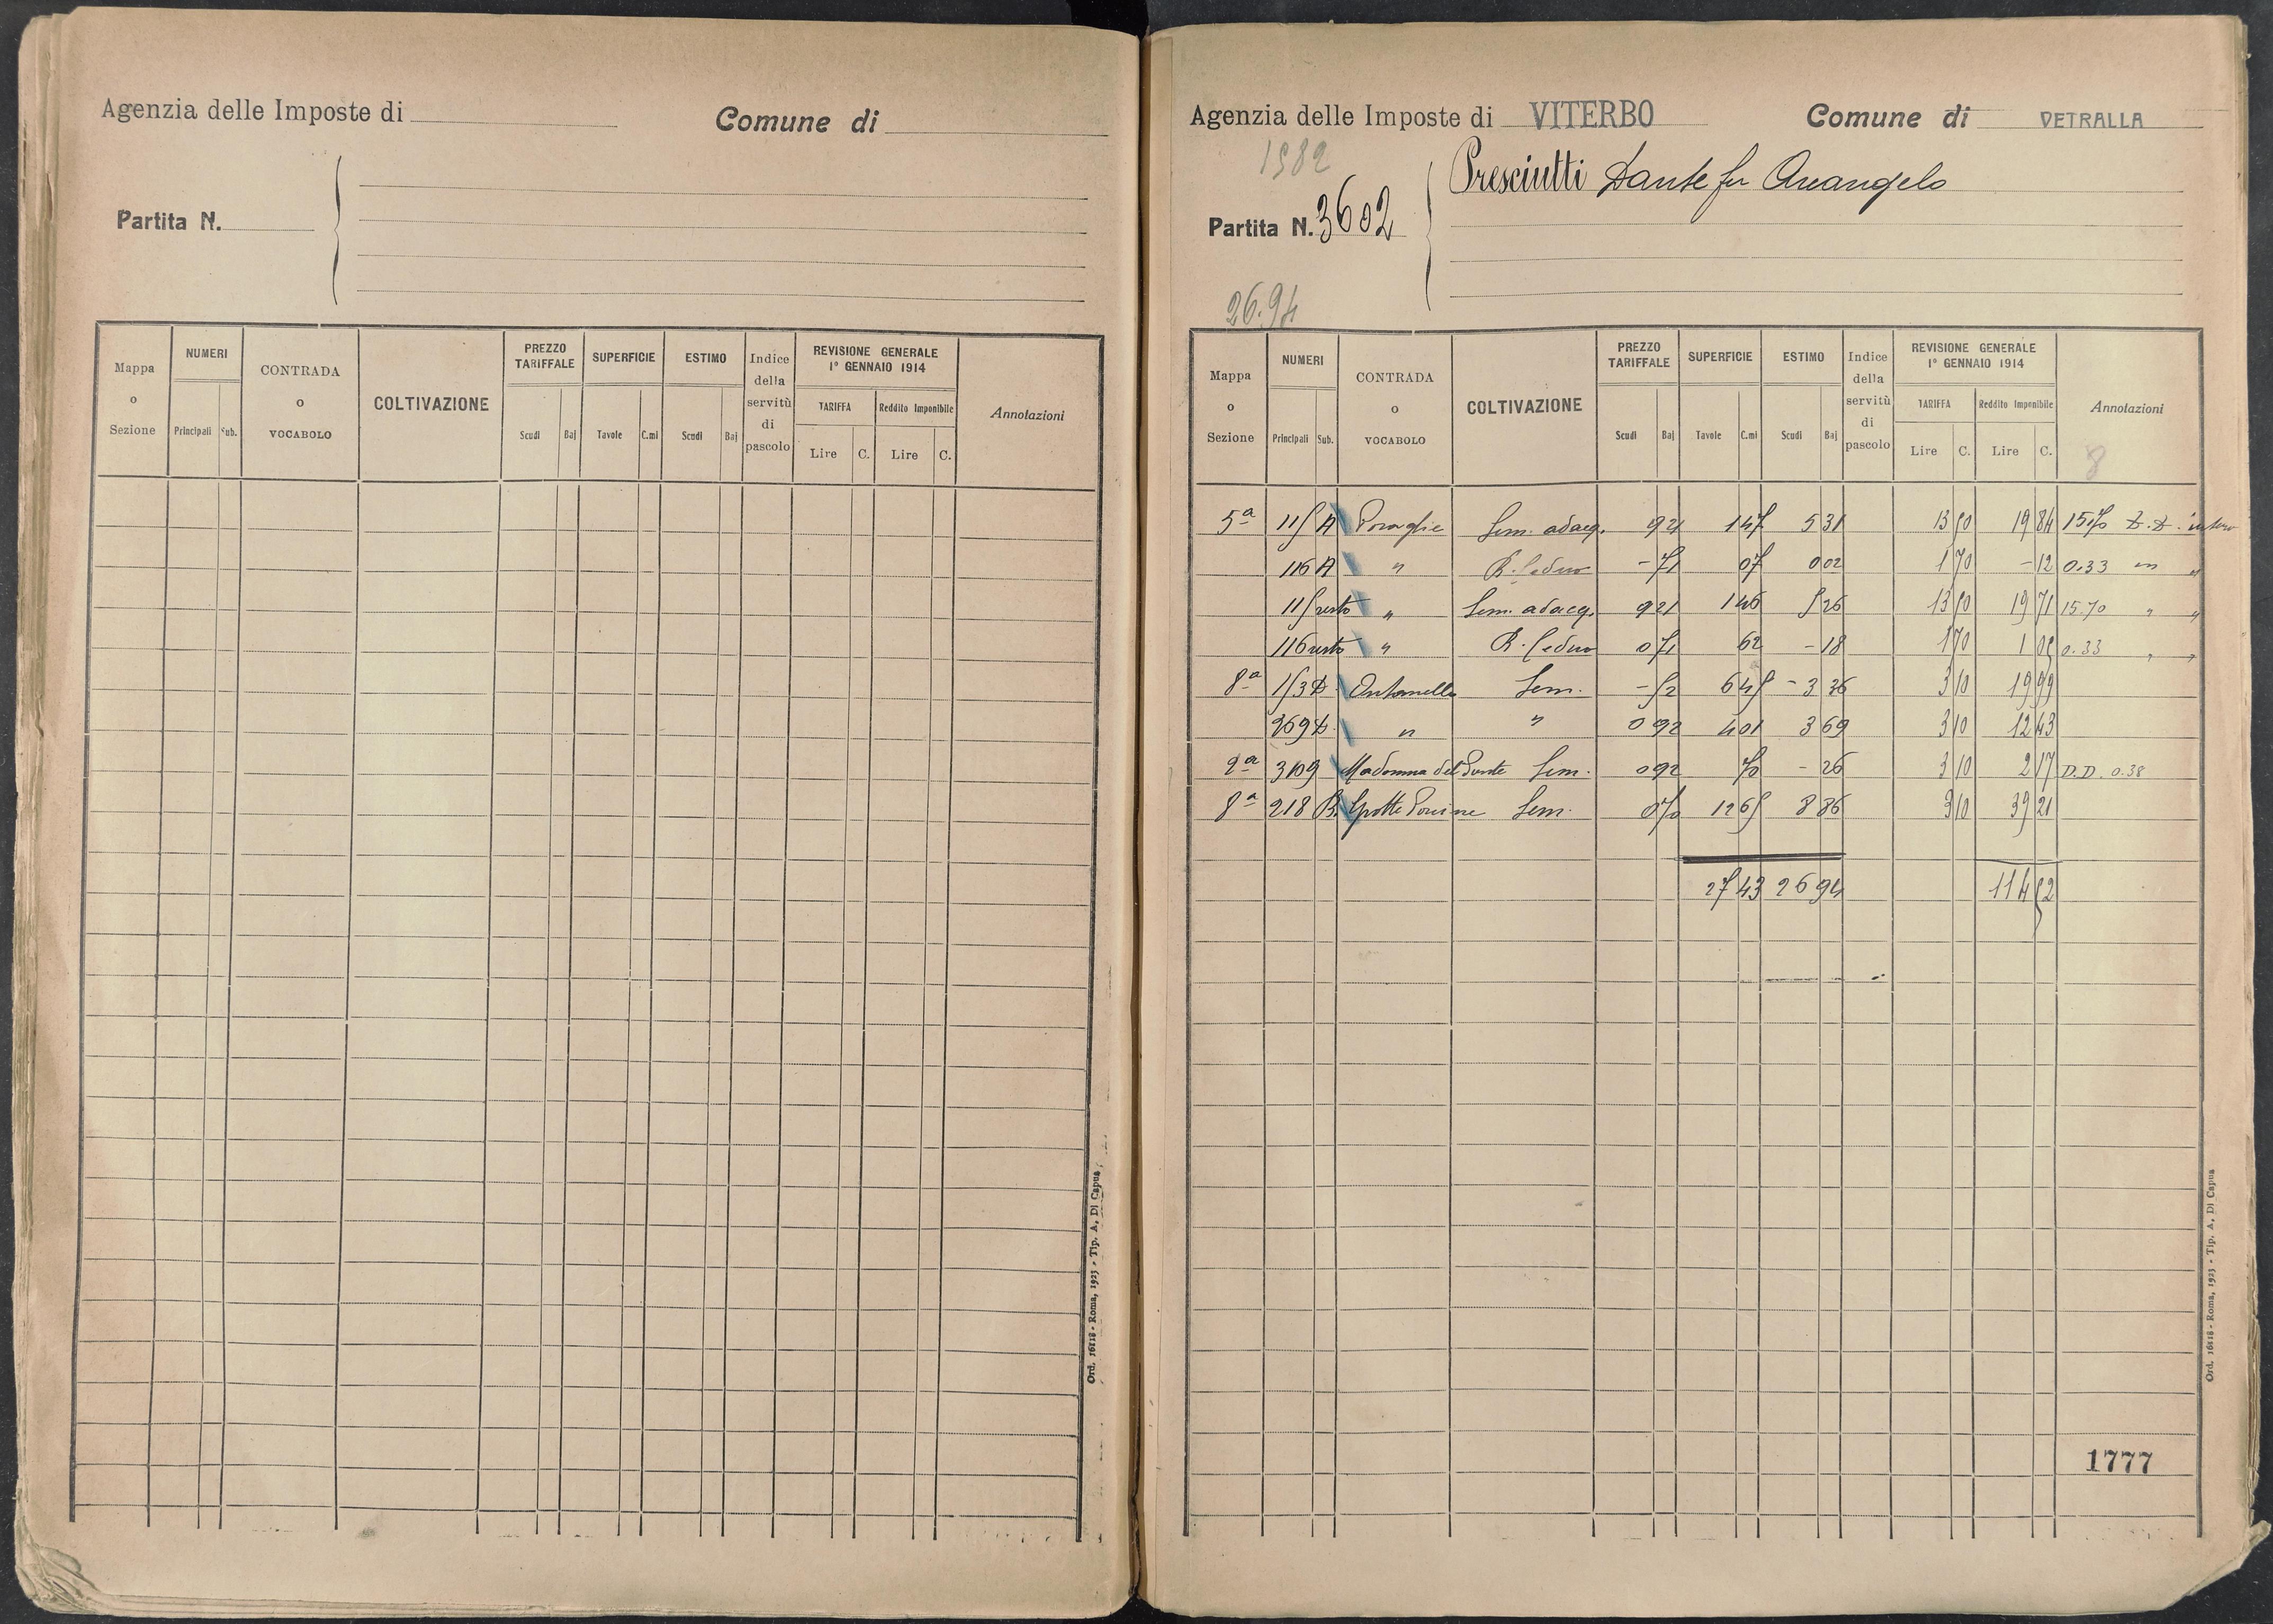 Agenzia delle Imposte di
Comune di
Partita N.
Mappa o Sezione | NUMERI | CONTRADA o VOCABOLO | COLTIVAZIONE | PREZZO TARIFFALE | SUPERFICIE | ESTIMO | Indice della servitù di pascolo | REVISIONE GENERALE 1° GENNAIO 1914 | Annotazioni
Principali | Sub. | Scudi | Baj | Tavole | C.mi | Scudi | Baj | TARIFFA | Reddito Imponibile
Lire | C. | Lire | C.
Ord. 16118 - Roma, 1923 - Tip. A. Di Capua
Agenzia delle Imposte di VITERBO
Comune di VETRALLA
1582
Presciutti Dante fu Arcangelo
Partita N. 3602
26.94
Mappa o Sezione | NUMERI | CONTRADA o VOCABOLO | COLTIVAZIONE | PREZZO TARIFFALE | SUPERFICIE | ESTIMO | Indice della servitù di pascolo | REVISIONE GENERALE 1° GENNAIO 1914 | Annotazioni
Principali | Sub. | Scudi | Baj | Tavole | C.mi | Scudi | Baj | TARIFFA | Reddito Imponibile
Lire | C. | Lire | C.
8
5ª | 115 | A | Sem. adacq. | 9 21 | 1 47 | 5 31 | 13 50 | 19 84 | D.D. intero
116 | A | " | B. Ceduo | 07 | 0 02 | 1 70 | - 12 | 0.33 " "
115 | resto | " | Sem. adacq. | 9 21 | 1 46 | 5 26 | 13 50 | 19 71 | 15.70 " "
116 | resto | " | B. Ceduo | 62 | - 18 | 1 70 | 1 05 | 0.33 " "
8ª | 153 | D | Sem. | - 52 | 6 45 | 3 36 | 3 10 | 19 99
269 | D | " | " | 0 92 | 4 01 | 3 69 | 3 10 | 12 43
2ª | 3109 | Madonna del Ponte | Sem. | 0 92 | 70 | - 26 | 3 10 | 2 17 | D.D. 0.38
8ª | 218 | B. | Grotte | Sem. | 0 70 | 12 65 | 8 86 | 3 10 | 39 21
27 43 | 26 94 | 114 52
1777
Ord. 16118 - Roma, 1923 - Tip. A. Di Capua